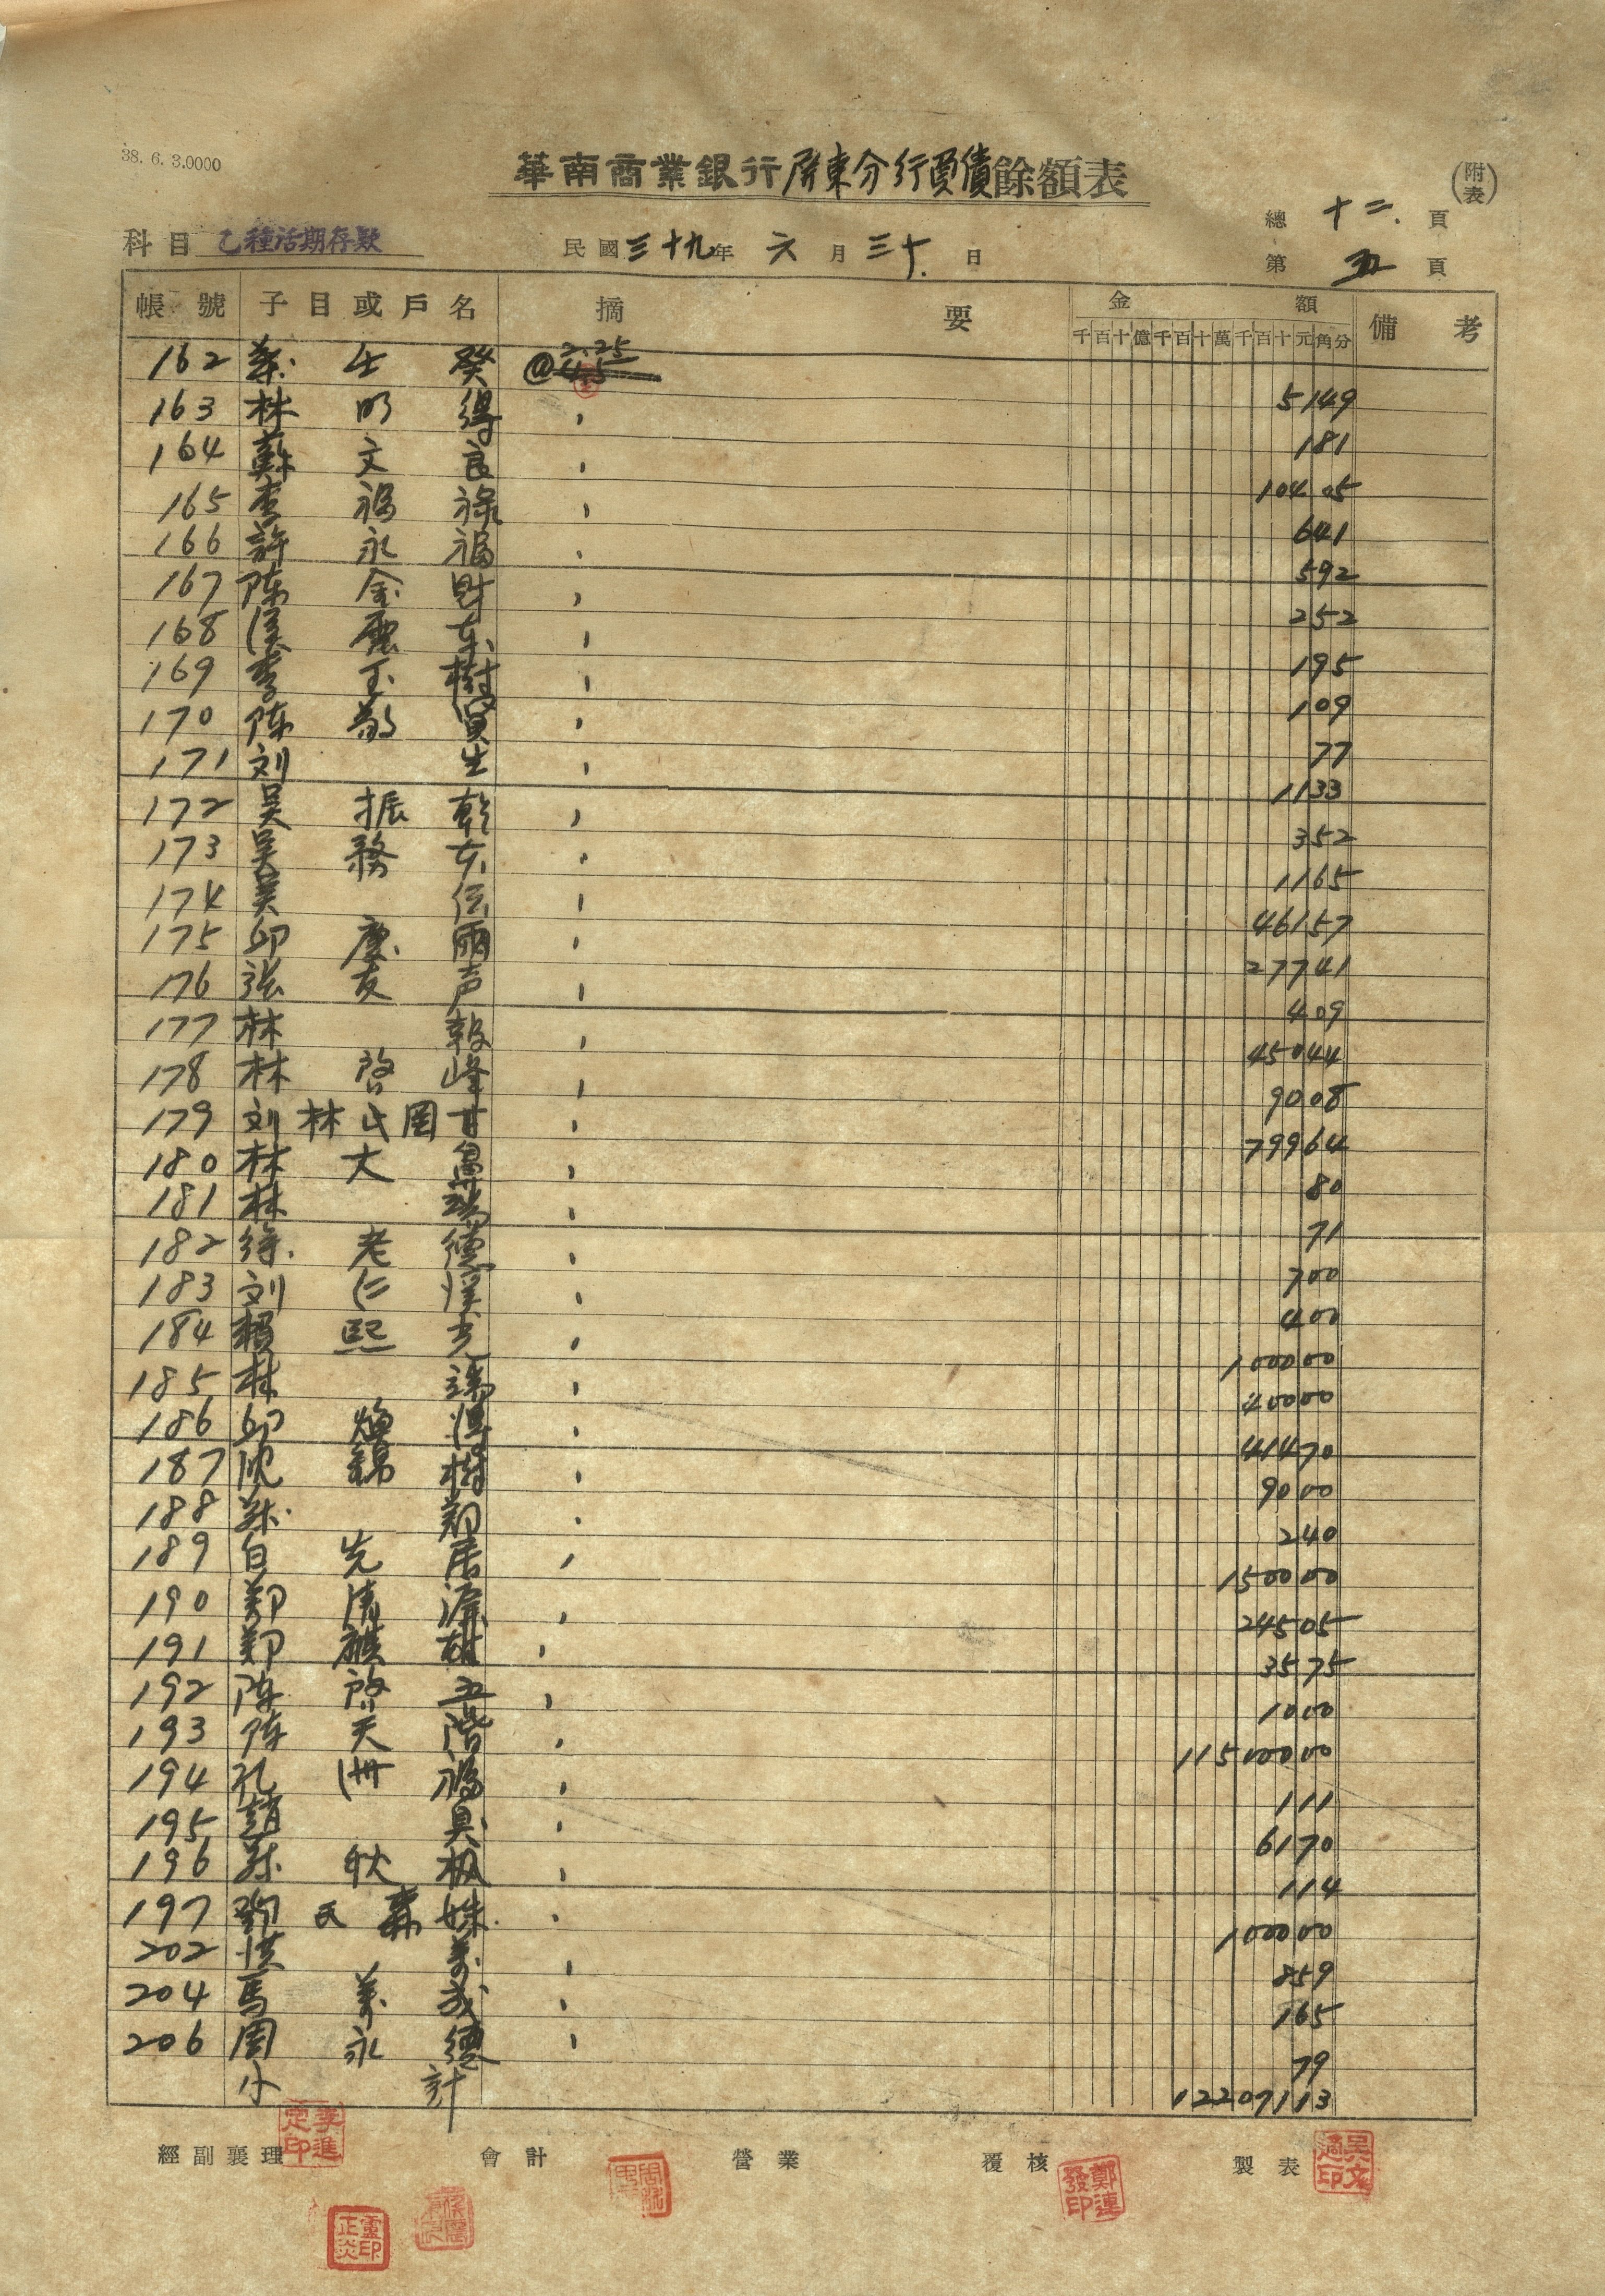 38. 6. 3.0000
華南商業銀行屏東分行負債餘額表
(附表)
總 十二. 頁
科目 乙種活期存款 民國三十九年 六 月 三十. 日
第 五 頁
帳號 子目或戶名 摘要 金額 備考
千百十億千百十萬千百十元角分
162 蔡 壬 癸 @ 2.25 4.5 5149
163 林 明 得 〃 181
164 蘇 文 良 〃 10405
165 李 福 祿 〃 641
166 許 永 福 〃 592
167 陈 金 財 〃 252
168 東 〃 195
169 李 玉 樹 〃 109
170 陈 〃 77
171 刘 生 〃 1133
172 吴 振 乾 〃 352
173 吴 務 〃 1165
174 吴 伝 〃 46157
175 邱 慶 〃 27741
176 張 友 声 〃 409
177 林 〃 45044
178 林 啓 峰 〃 9008
179 刘 林 氏 罔 甘 〃 79964
180 林 大 〃 80
181 林 瑞 〃 71
182 徐 老 德 〃 700
183 刘 仁 漢 〃 400
184 賴 熙 光 〃 100000
185 林 瑞 〃 40000
186 邱 煥 得 〃 41470
187 沈 錦 樹 〃 9000
188 蔡 〃 240
189 白 先 居 〃 150000
190 鄭 清 源 〃 24505
191 鄭 〃 3575
192 陈 啓 五 〃 1000
193 陈 天 階 〃 11500000
194 孔 福 〃 111
195 趙 〃 6170
196 蔡 秋 〃 114
197 氏 姝 〃 100000
202 洪 萬 〃 859
204 馬 萬 成 〃 165
206 周 永 德 〃 79
小計 12207113
經副襄理 會計 營業 覆核 製表
李進定印
鄭連發印
吳文通印